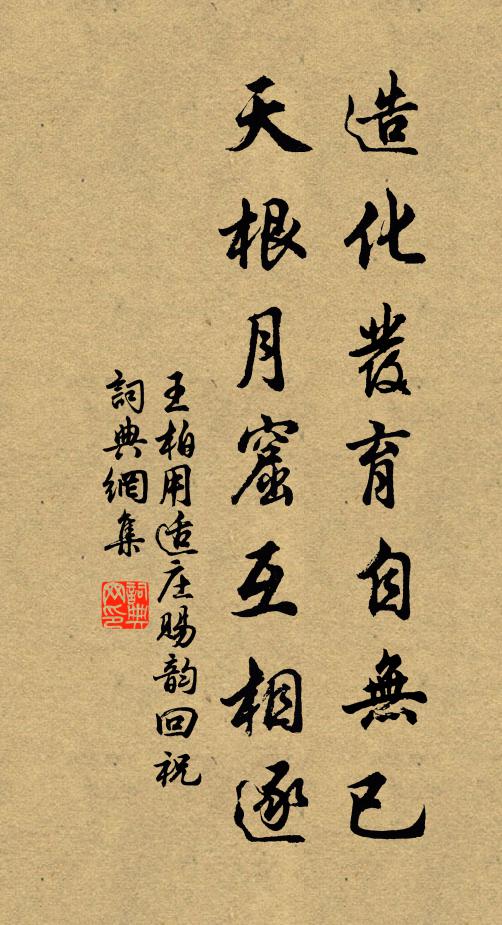 造化發育自無已
天根月窟互相逐
王柏用适庄賜韵回祝
詞典網集
詞典網印